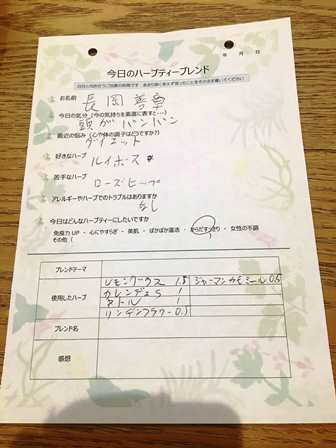 年 月 日
今日のハーブティーブレンド
お名前
長岡
今日の気分(今の気持ちを画面に表すと…)
頭がパンパン
最近の悩み(心や体の調子はどうですか?)
ダイエット
好きなハーブ
ルイボス
苦手なハーブ
ローズヒップ
アレルギーやハーブでのトラブルはありますか
なし
今日はどんなハーブティーにしたいですか
免疫力UP ・ 心にやすらぎ ・ 美肌 ・ ぽかぽか温活 ・ からだすっきり ・ 女性の不調
その他(
ブレンドテーマ
使用したハーブ
レモングラス 1.5 ジャーマンカモミール 0.5
カレンデュラ 1
ネトル 1
リンデンフラワー 0.5
ブレンド名
感想